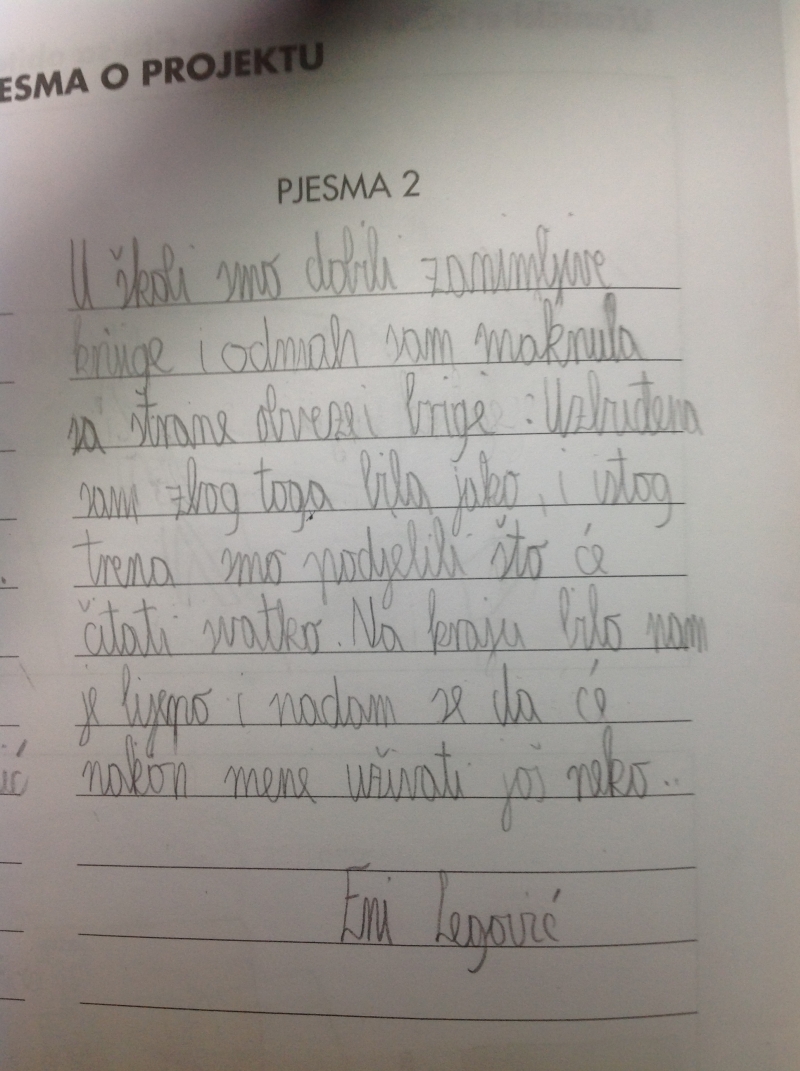 ESMA O PROJEKTU
PJESMA 2
U školi smo dobili zanimljive
knjige i odmah sam maknula
sa strane obveze i brige : Uzbuđena
sam zbog toga bila jako, i istog
trena smo podjelili što će
čitati svatko. Na kraju bilo nam
je lijepo i nadam se da će
nakon mene uživati još neko..
Eni Legović